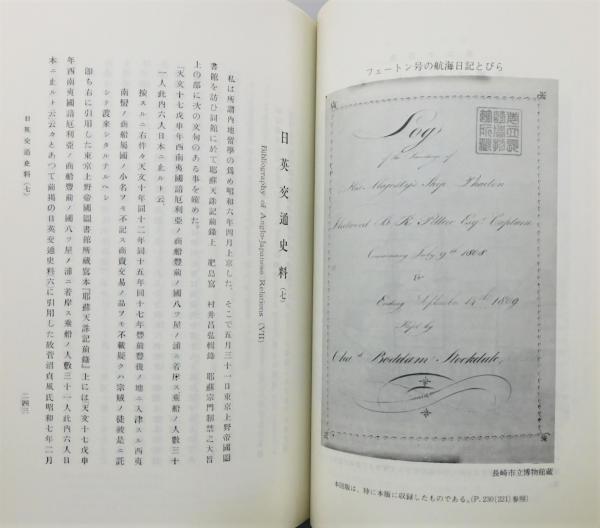 フェートン号の航海日記とびら
Log
of the Proceedings of
His Majesty's Ship Phaeton
Fleetwood B. R. Pellew Esqr. Captain
Commencing July 9th 1808
&
Ending September 14th 1809
Kept by
Chas. Boddam Stockdale.
長崎市立博物館藏
本図版は、特に本版に収録したものである。(P. 230〔221〕参照)
日英交通史料(七)
Bibliography of Anglo-Japanese Relations (VII)
私は所謂内地留學の爲め昭和六年四月上京した。そこで五月三十一日東京上野帝國圖
書館を訪ひ同館に於て耶蘇天誅記前錄上　肥島寫　村井昌弘輯錄　耶蘇宗門制禁之大旨
上の部に次の文句のある事を確めた。
『天文十七戊申年西南夷國諳厄利亞ノ商船豐前ノ國八ツ屋ノ浦ニ若岸ス乘船ノ人數三十
一人此内六人日本ニ止ルト云。
按スルニ右件々天文十年同十二年同十五年同十七年豐前豐後ノ地ニ入津スル西夷
南蠻ノ商船屬國ノ小名ヲモ不記ス商賣交易ノ品ヲモ不載疑クハ宗賊ノ徒彼是ニ託
シテ渡來シタルナルヘシ
即ち右に引用した東京上野帝國圖書館所藏寫本『耶蘇天誅記前錄』上には天文十七戊申
年西南夷國諳厄利亞ノ商船豐前ノ國八ツ屋ノ浦ニ若岸ス乘船ノ人數三十一人此内六人日
本ニ止ルト云云々とあつて前揭の日英交通史料六に引用した故菅沼貞風氏昭和七年二月
日英交通史料(七)
二四三